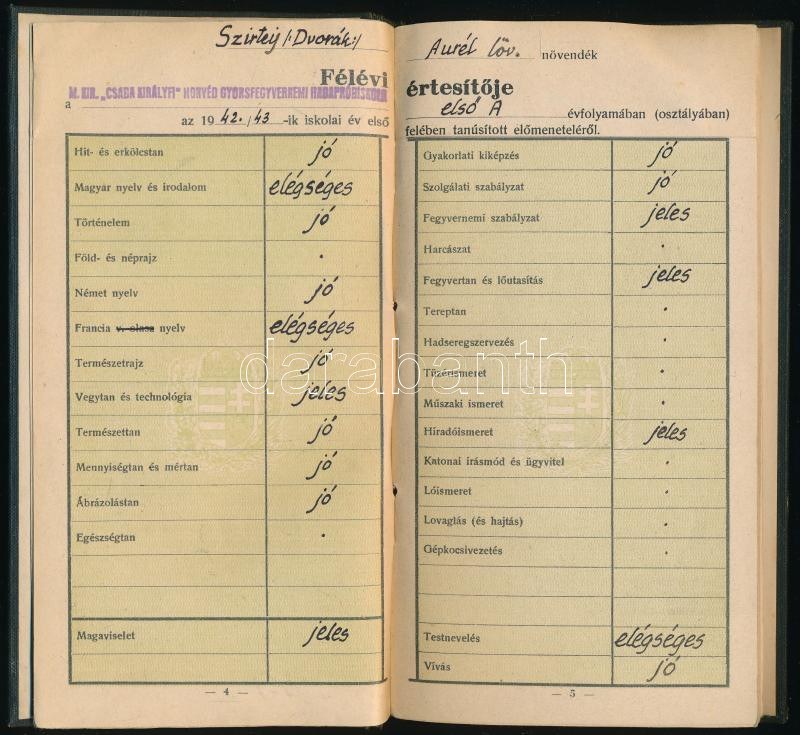 Szirtej /:Dvorák:/
Félévi
M. KIR. „CSABA KIRÁLYFI" HONVÉD GYORSFEGYVERNEMI HADAPRÓDISKOLA
a
az 1942./43-ik iskolai év első
Hit- és erkölcstan jó
Magyar nyelv és irodalom elégséges
Történelem jó
Föld- és néprajz .
Német nyelv jó
Francia v. olasz nyelv elégséges
Természetrajz jó
Vegytan és technológia jeles
Természettan jó
Mennyiségtan és mértan jó
Ábrázolástan jó
Egészségtan .
Magaviselet jeles
— 4 —
Aurél löv. növendék
értesítője
első A évfolyamában (osztályában)
felében tanúsított előmeneteléről.
Gyakorlati kiképzés jó
Szolgálati szabályzat jó
Fegyvernemi szabályzat jeles
Harcászat .
Fegyvertan és lőutasítás jeles
Tereptan .
Hadseregszervezés .
Tüzérismeret .
Műszaki ismeret .
Híradóismeret jeles
Katonai írásmód és ügyvitel
Lóismeret .
Lovaglás (és hajtás) .
Gépkocsivezetés .
Testnevelés elégséges
Vívás jó
— 5 —
darabanth